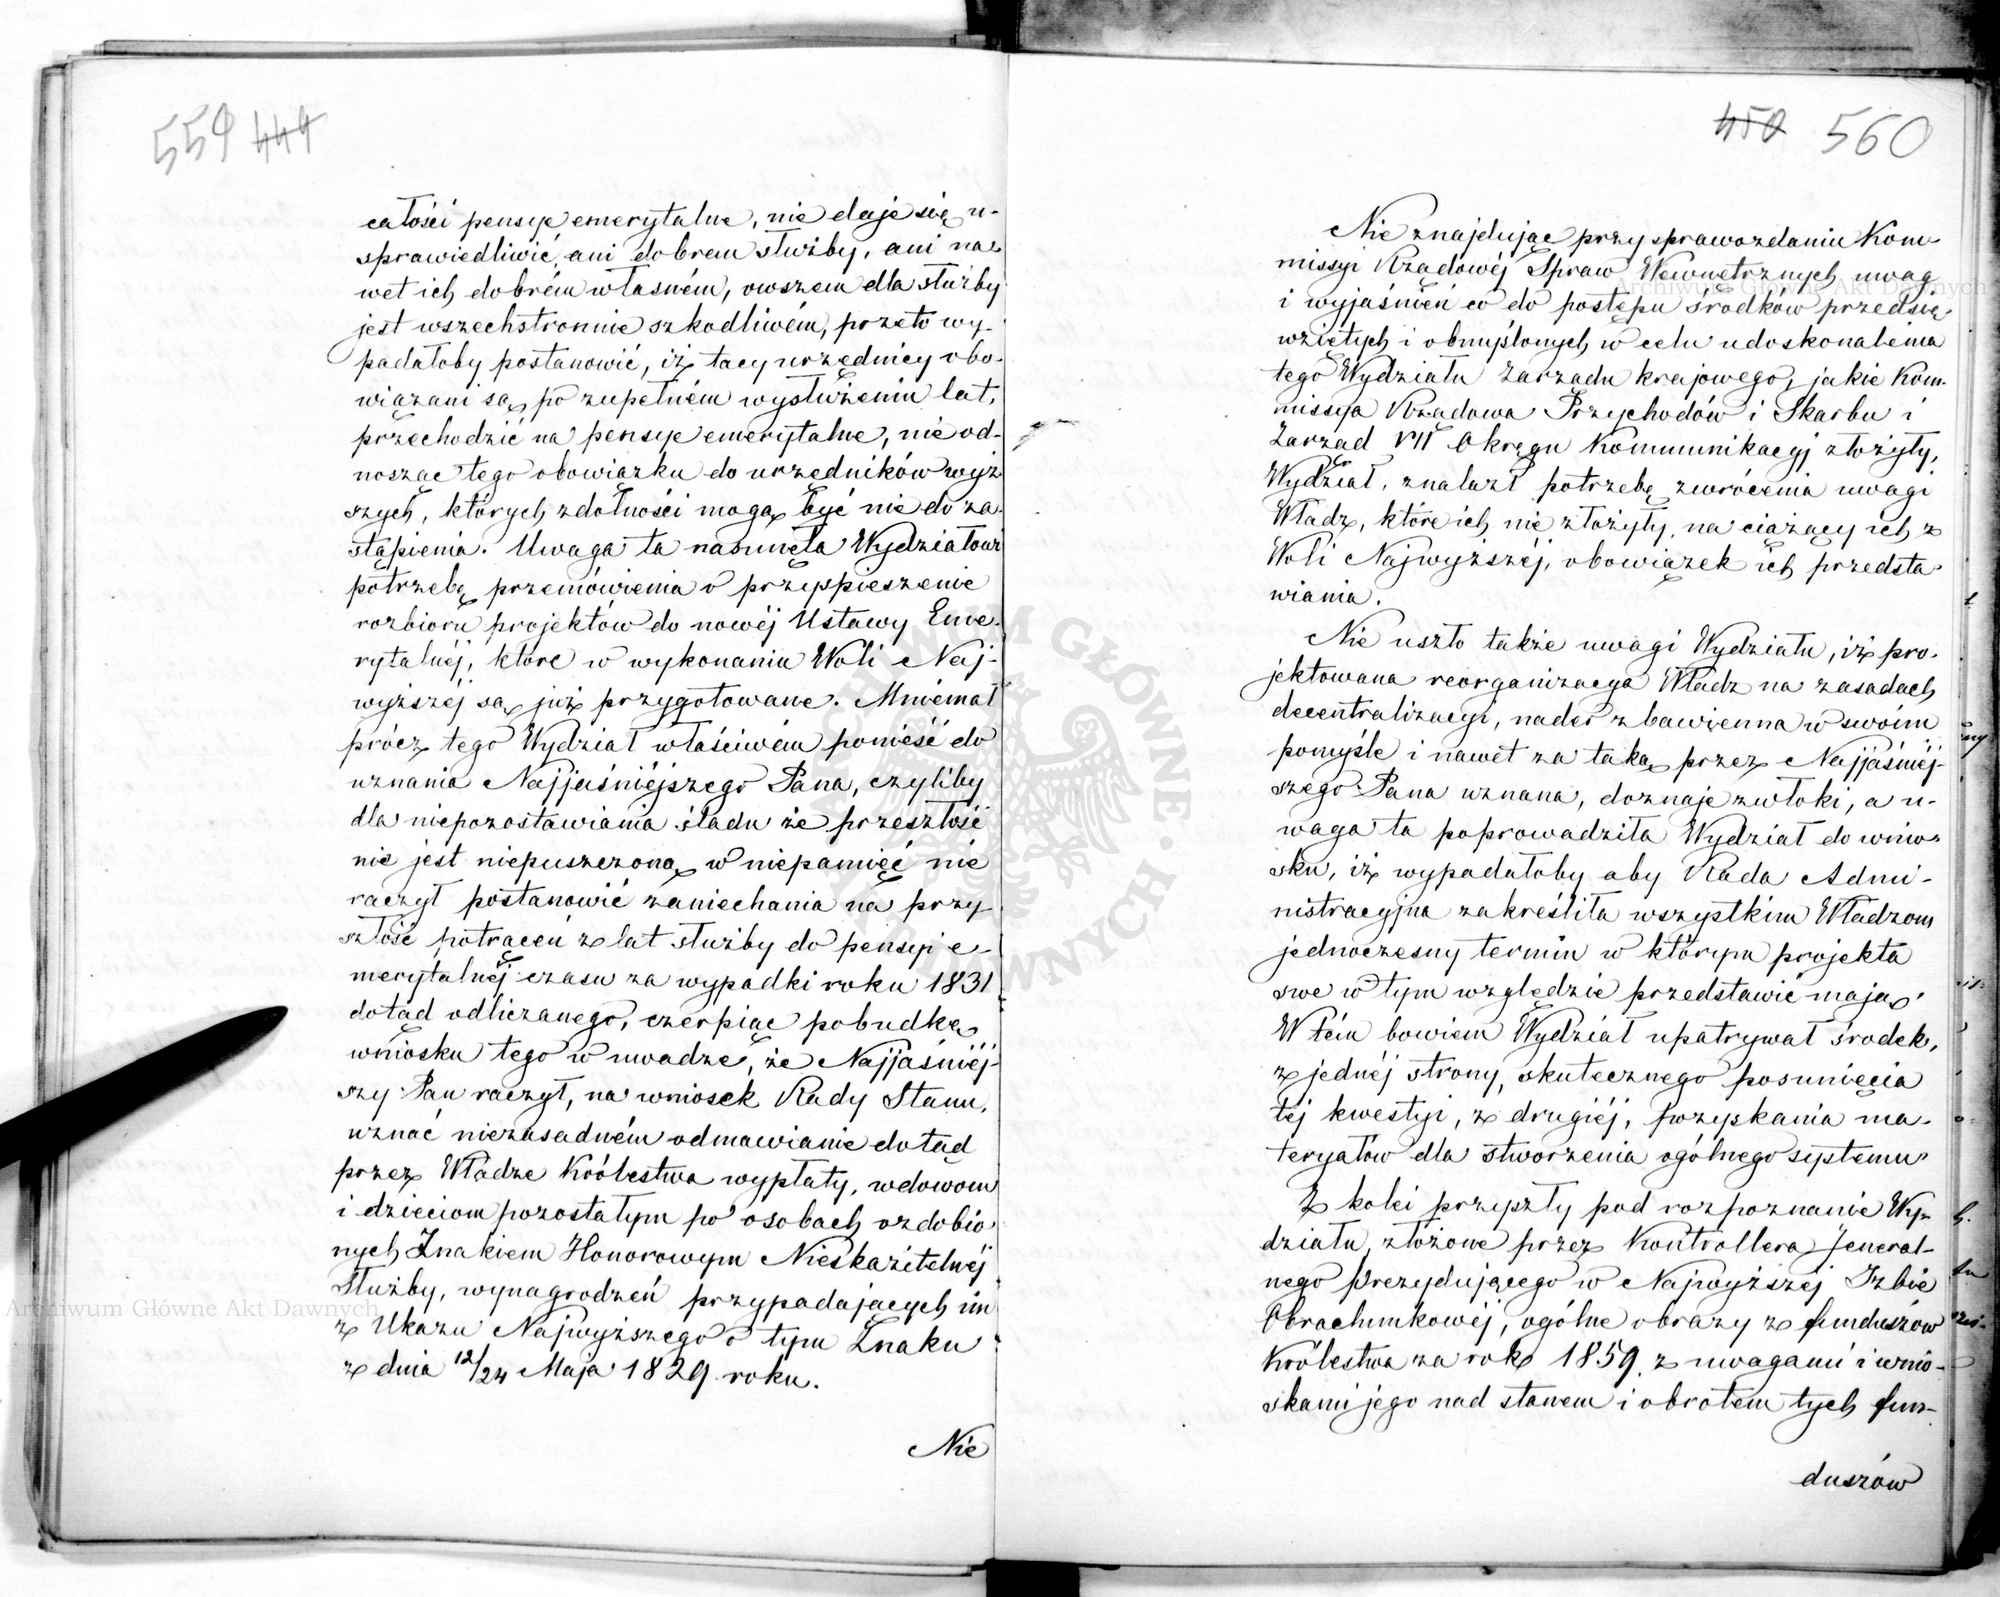 559 449
całości pensye emerytalne, nie daje się u-
sprawiedliwić, ani dobrem służby, ani na-
wet ich dobrém własném, owszem dla służby
jest wszechstronnie szkodliwém, przeto wy-
padałoby postanowić, iż tacy urzędnicy obo-
wiązani są, po zupełném wysłużeniu lat,
przechodzić na pensye emerytalne, nie od-
nosząc tego obowiązku do urzędników wyż-
szych, których zdolności mogą być nie do za-
stąpienia. Uwaga ta nasunęła Wydziałowi
potrzebę przemówienia o przyspieszenie
rozbioru projektów do nowéj Ustawy Eme-
rytalnéj, które w wykonaniu Woli Naj-
wyższéj są już przygotowane. Mniemał
prócz tego Wydział właściwém ponieść do
uznania Najjaśniéjszego Pana, czyliby
dla niepozostawiania śladu że przeszłość
nie jest niepuszczoną w niepamięć nie
raczył postanowić zaniechania na przy-
szłość potrąceń z lat służby do pensyi e-
merytalnéj czasu za wypadki roku 1831
dotąd odliczanego, czerpiąc pobudkę
wniosku tego w uwadze, że Najjaśniéj-
szy Pan raczył, na wniosek Rady Stanu,
uznać niezasadném odmawianie dotąd
przez Władze Królestwa wypłaty, wdowom
i dzieciom pozostałym po osobach ozdobio-
nych Znakiem Honorowym Nieskazitelnéj
Służby, wynagrodzeń przypadających im
z Ukazu Najwyższego o tym Znaku
z dnia 12/24 Maja 1829 roku.
Nie
450 560
Nie znajdując przy sprawozdaniu Kom-
missyi Rządowéj Spraw Wewnętrznych uwag
i wyjaśnień co do postępu środków przedsię-
wziętych i obmyślonych w celu udoskonalenia
tego Wydziału Zarządu krajowego, jakie Kom-
missya Rządowa Przychodów i Skarbu i
Zarząd VII Okręgu Kommunikacyj złożyły,
Wydział, znalazł potrzebę zwrócenia uwagi
Władz, które ich nie złożyły, na ciążący ich z
Woli Najwyższéj, obowiązek ich przedsta-
wiania.
Nie uszło także uwagi Wydziału, iż pro-
jektowana reorganizacya Władz na zasadach
decentralizacyi, nader zbawienna w swoim
pomyśle i nawet za taką przez Najjaśniéj-
szego Pana uznana, doznaje zwłoki, a u-
waga ta poprowadziła Wydział do wnio-
sku, iż wypadałoby aby Rada Admi-
nistracyjna zakreśliła wszystkim Władzom
jednoczesny termin w którym projekta
swe w tym względzie przedstawić mają.
W tém bowiem Wydział upatrywał środek,
z jednéj strony, skutecznego posunięcia
téj kwestyi, z drugiéj, pozyskania ma-
teryałów dla stworzenia ogólnego systemu.
Z kolei przyszły pod rozpoznanie Wy-
działu, złożone przez Kontrollera Jeneral-
nego prezydującego w Najwyższéj Izbie
Obrachunkowéj, ogólne obrazy z funduszów
Królestwa za rok 1859, z uwagami i wnio-
skami jego nad stanem i obrotem tych fun-
duszów
Archiwum Główne Akt Dawnych
Archiwum Główne Akt Dawnych
ARCHIWUM GŁÓWNE AKT DAWNYCH